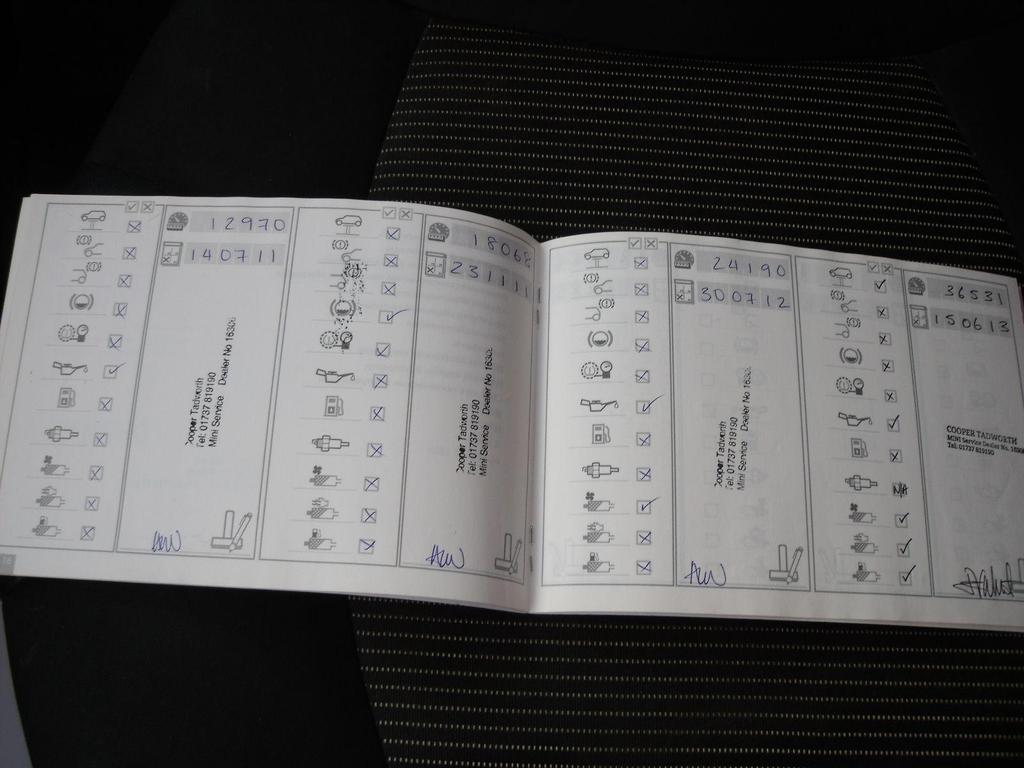 12970
140711
Cooper Tadworth
Tel: 01737 819190
Mini Service Dealer No 16306
18068
231111
Cooper Tadworth
Tel: 01737 819190
Mini Service Dealer No 16306
24190
300712
Cooper Tadworth
Tel: 01737 819190
Mini Service Dealer No 16306
N/A
36531
150613
COOPER TADWORTH
MINI Service Dealer No.
Tel: 01737 819190